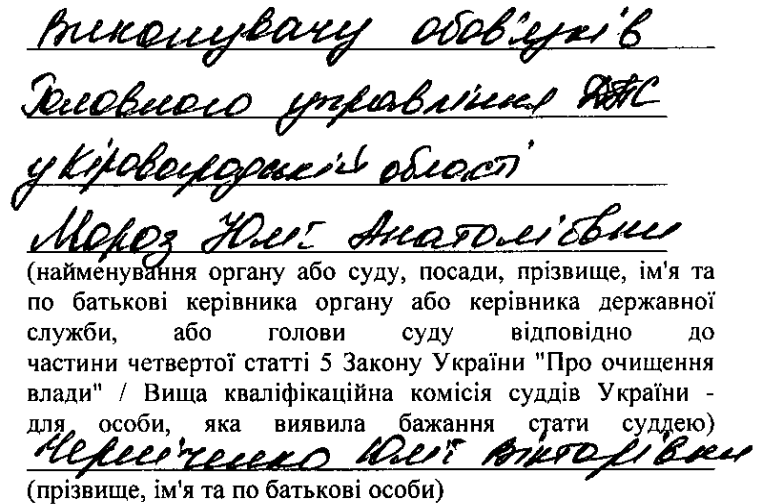 Виконувачу обов'язків
Головного управління ДПС
у Кіровоградській області
Мороз Юлії Анатоліївни
(найменування органу або суду, посади, прізвище, ім'я та
по батькові керівника органу або керівника державної
служби, або голови суду відповідно до
частини четвертої статті 5 Закону України "Про очищення
влади" / Вища кваліфікаційна комісія суддів України -
для особи, яка виявила бажання стати суддею)
Юлії Вікторівни
(прізвище, ім'я та по батькові особи)